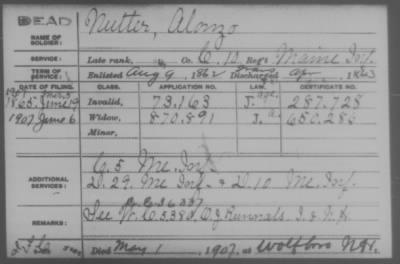 DEAD
NAME OF SOLDIER: Nutter, Alonzo
SERVICE: Late rank, Co. Reg't Maine Inf.
TERM OF SERVICE: Enlisted Aug 9, 1862 Discharged Apr , 1863
DATE OF FILING. CLASS. APPLICATION NO. LAW. CERTIFICATE NO.
1865. June 19 Invalid, 73.163 287.728
1907. June 6 Widow, 870.891 650.286
Minor,
ADDITIONAL SERVICES: C. 5 Me. Inf.
D. 29. Me Inf. & D. 10 Me. Inf.
REMARKS: C 36337
See
Died May 1, 1907, at Wolfboro N.H.